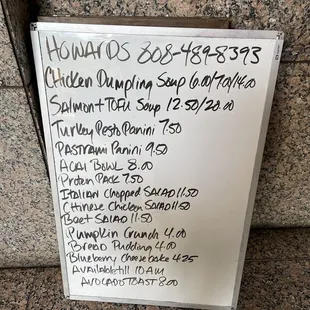 HOWARDS 808-489-8393
Chicken Dumpling Soup 6.00/7.0/14.00
SALMON + TOFU Soup 12.50/20.00
Turkey Pesto Panini 7.50
PASTRAMI Panini 9.50
ACAI BOWL 8.00
Protein PACK 7.50
ITALIAN Chopped SALAD 11.50
Chinese Chicken SALAD 11.50
Beet SALAD 11.50
Pumpkin Crunch 4.00
Bread Pudding 4.00
Blueberry Cheesebake 4.25
AVAILABLE till 10 AM
AVOCADO TOAST 8.00